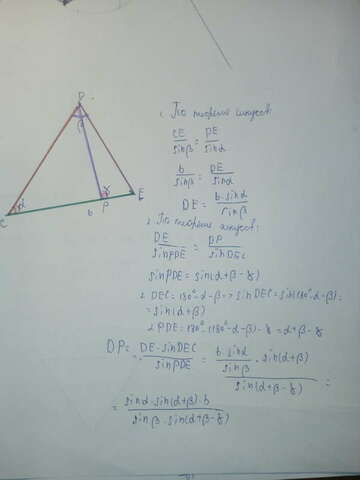 D
β
γ
α
C
b
P
E
1. По теореме синусов:
CE/sinβ = DE/sinα
b/sinβ = DE/sinα
DE = b·sinα/sinβ
2. По теореме синусов:
DE/sinPDE = DP/sinDEC
sinPDE = sin(α+β-γ)
∠DEC = 180°-α-β => sinDEC = sin(180°-α-β) =
= sin(α+β)
∠PDE = 180°-(180°-α-β)-γ = α+β-γ
DP = DE·sinDEC/sinPDE = b·sinα/sinβ · sin(α+β)/sin(α+β-γ) =
= sinα·sin(α+β)·b/sinβ·sin(α+β-γ)